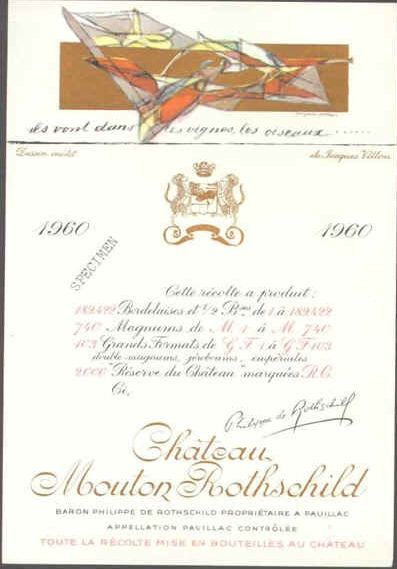 ils vont dans les vignes, les oiseaux ......
Dessin inédit de Jacques Villon
1960 1960
SPECIMEN
Cette récolte a produit:
182422 Bordelaises et 1/2 Bses de 1 à 182422
740 Magnums de M 1 à M 740
103 Grands Formats de G F 1 à G F 103
double magnums, jéroboams, impériales
2000 "Réserve du Château" marquées R.C.
Ce,
Philippe de Rothschild
Château
Mouton Rothschild
BARON PHILIPPE DE ROTHSCHILD PROPRIÉTAIRE A PAUILLAC
APPELLATION PAUILLAC CONTRÔLÉE
TOUTE LA RÉCOLTE MISE EN BOUTEILLES AU CHÂTEAU